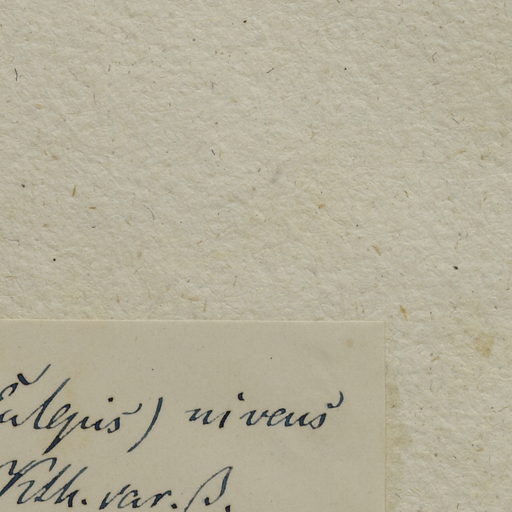 Eulepis) niveus
Klth. var. β.